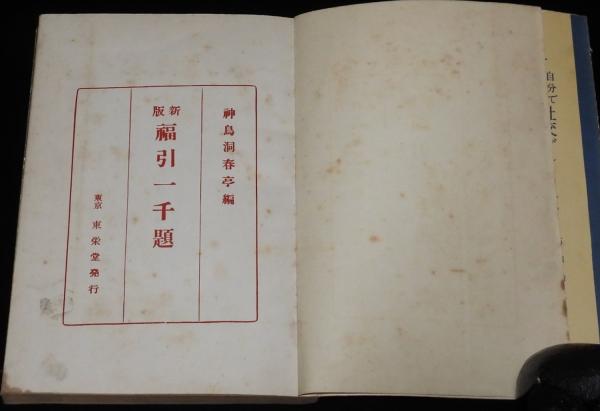 自分で
神鳥洞春亭編
新版
福引一千題
東京 東栄堂発行